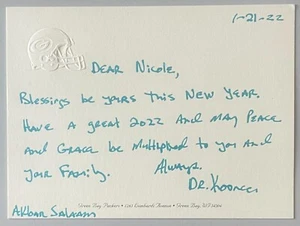 1-21-22
Dear Nicole,
Blessings be yours this New Year.
Have a great 2022 and may Peace
and Grace be multiplied to you and
your Family. Always,
Dr.
Green Bay Packers • 1265 Lombardi Avenue • Green Bay, WI 54304
Akbar Salaam